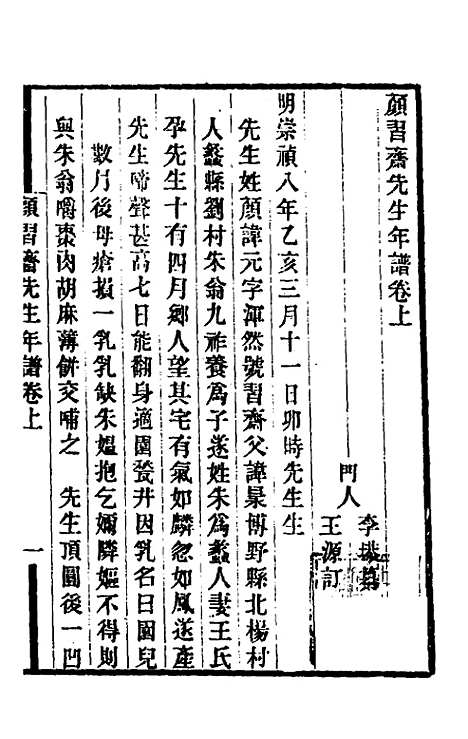 顏習齋先生年譜卷上
門人
李塨纂
王源訂
明崇禎八年乙亥三月十一日卯時先生生
先生姓顏諱元字渾然號習齋父諱杲博野縣北楊村
人蠡縣劉村朱翁九祚養爲子遂姓朱爲蠡人妻王氏
孕先生十有四月鄉人望其宅有氣如麟忽如鳳遂產
先生啼聲甚高七日能翻身適園甃井因乳名曰園兒
數月後母瘡損一乳乳缺朱媼抱乞嬭隣嫗不得則
與朱翁嚼棗肉胡麻薄餅交哺之　先生頂圓後一凹
顏習齋先生年譜卷上
一